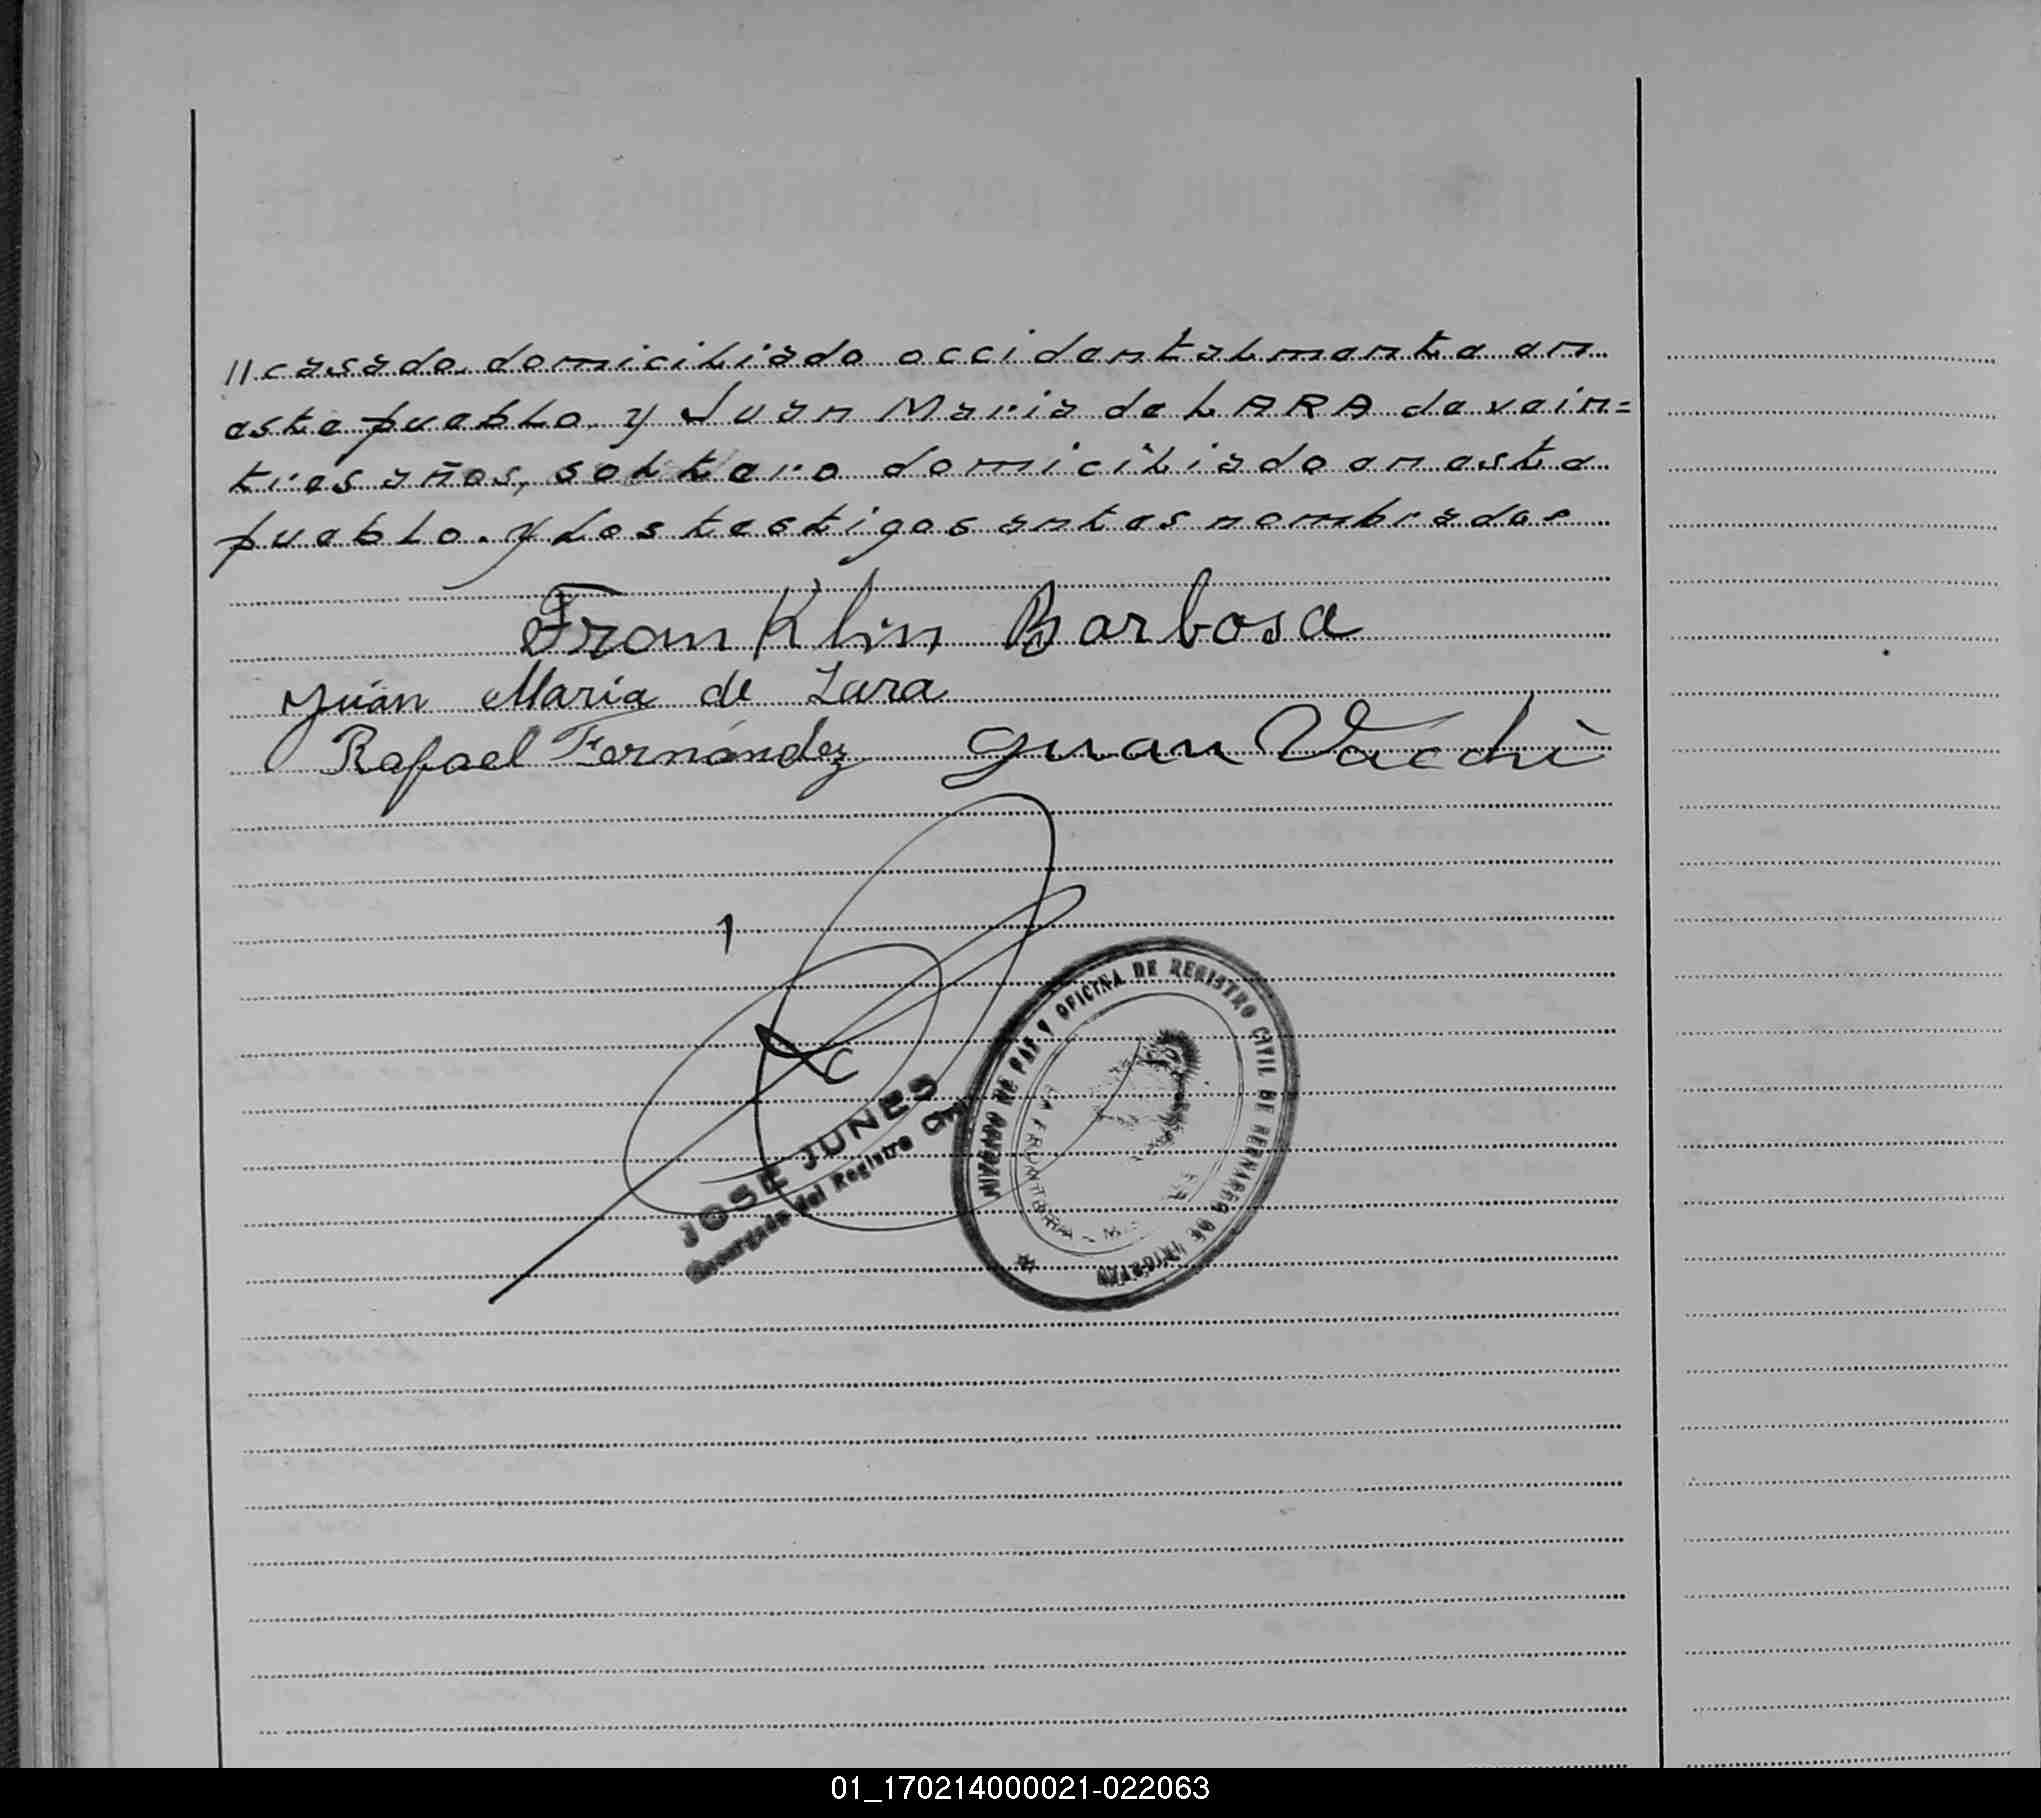 // casado, domiciliado occidentalmente en
este pueblo, y Juan Maria de LARA de vein=
tres años, soltero domiciliado en este
pueblo. y los testigos antes nombrados
Franklin Barbosa
Juan Maria de Lara
Rafael Fernández Juan Vacchi
JOSE JUNES
Encargado del Registro Civil
JUZGADO DE PAZ Y OFICINA DE REGISTRO CIVIL DE BERNARDO DE IRIGOYEN
FRONTERA - M
01_170214000021-022063